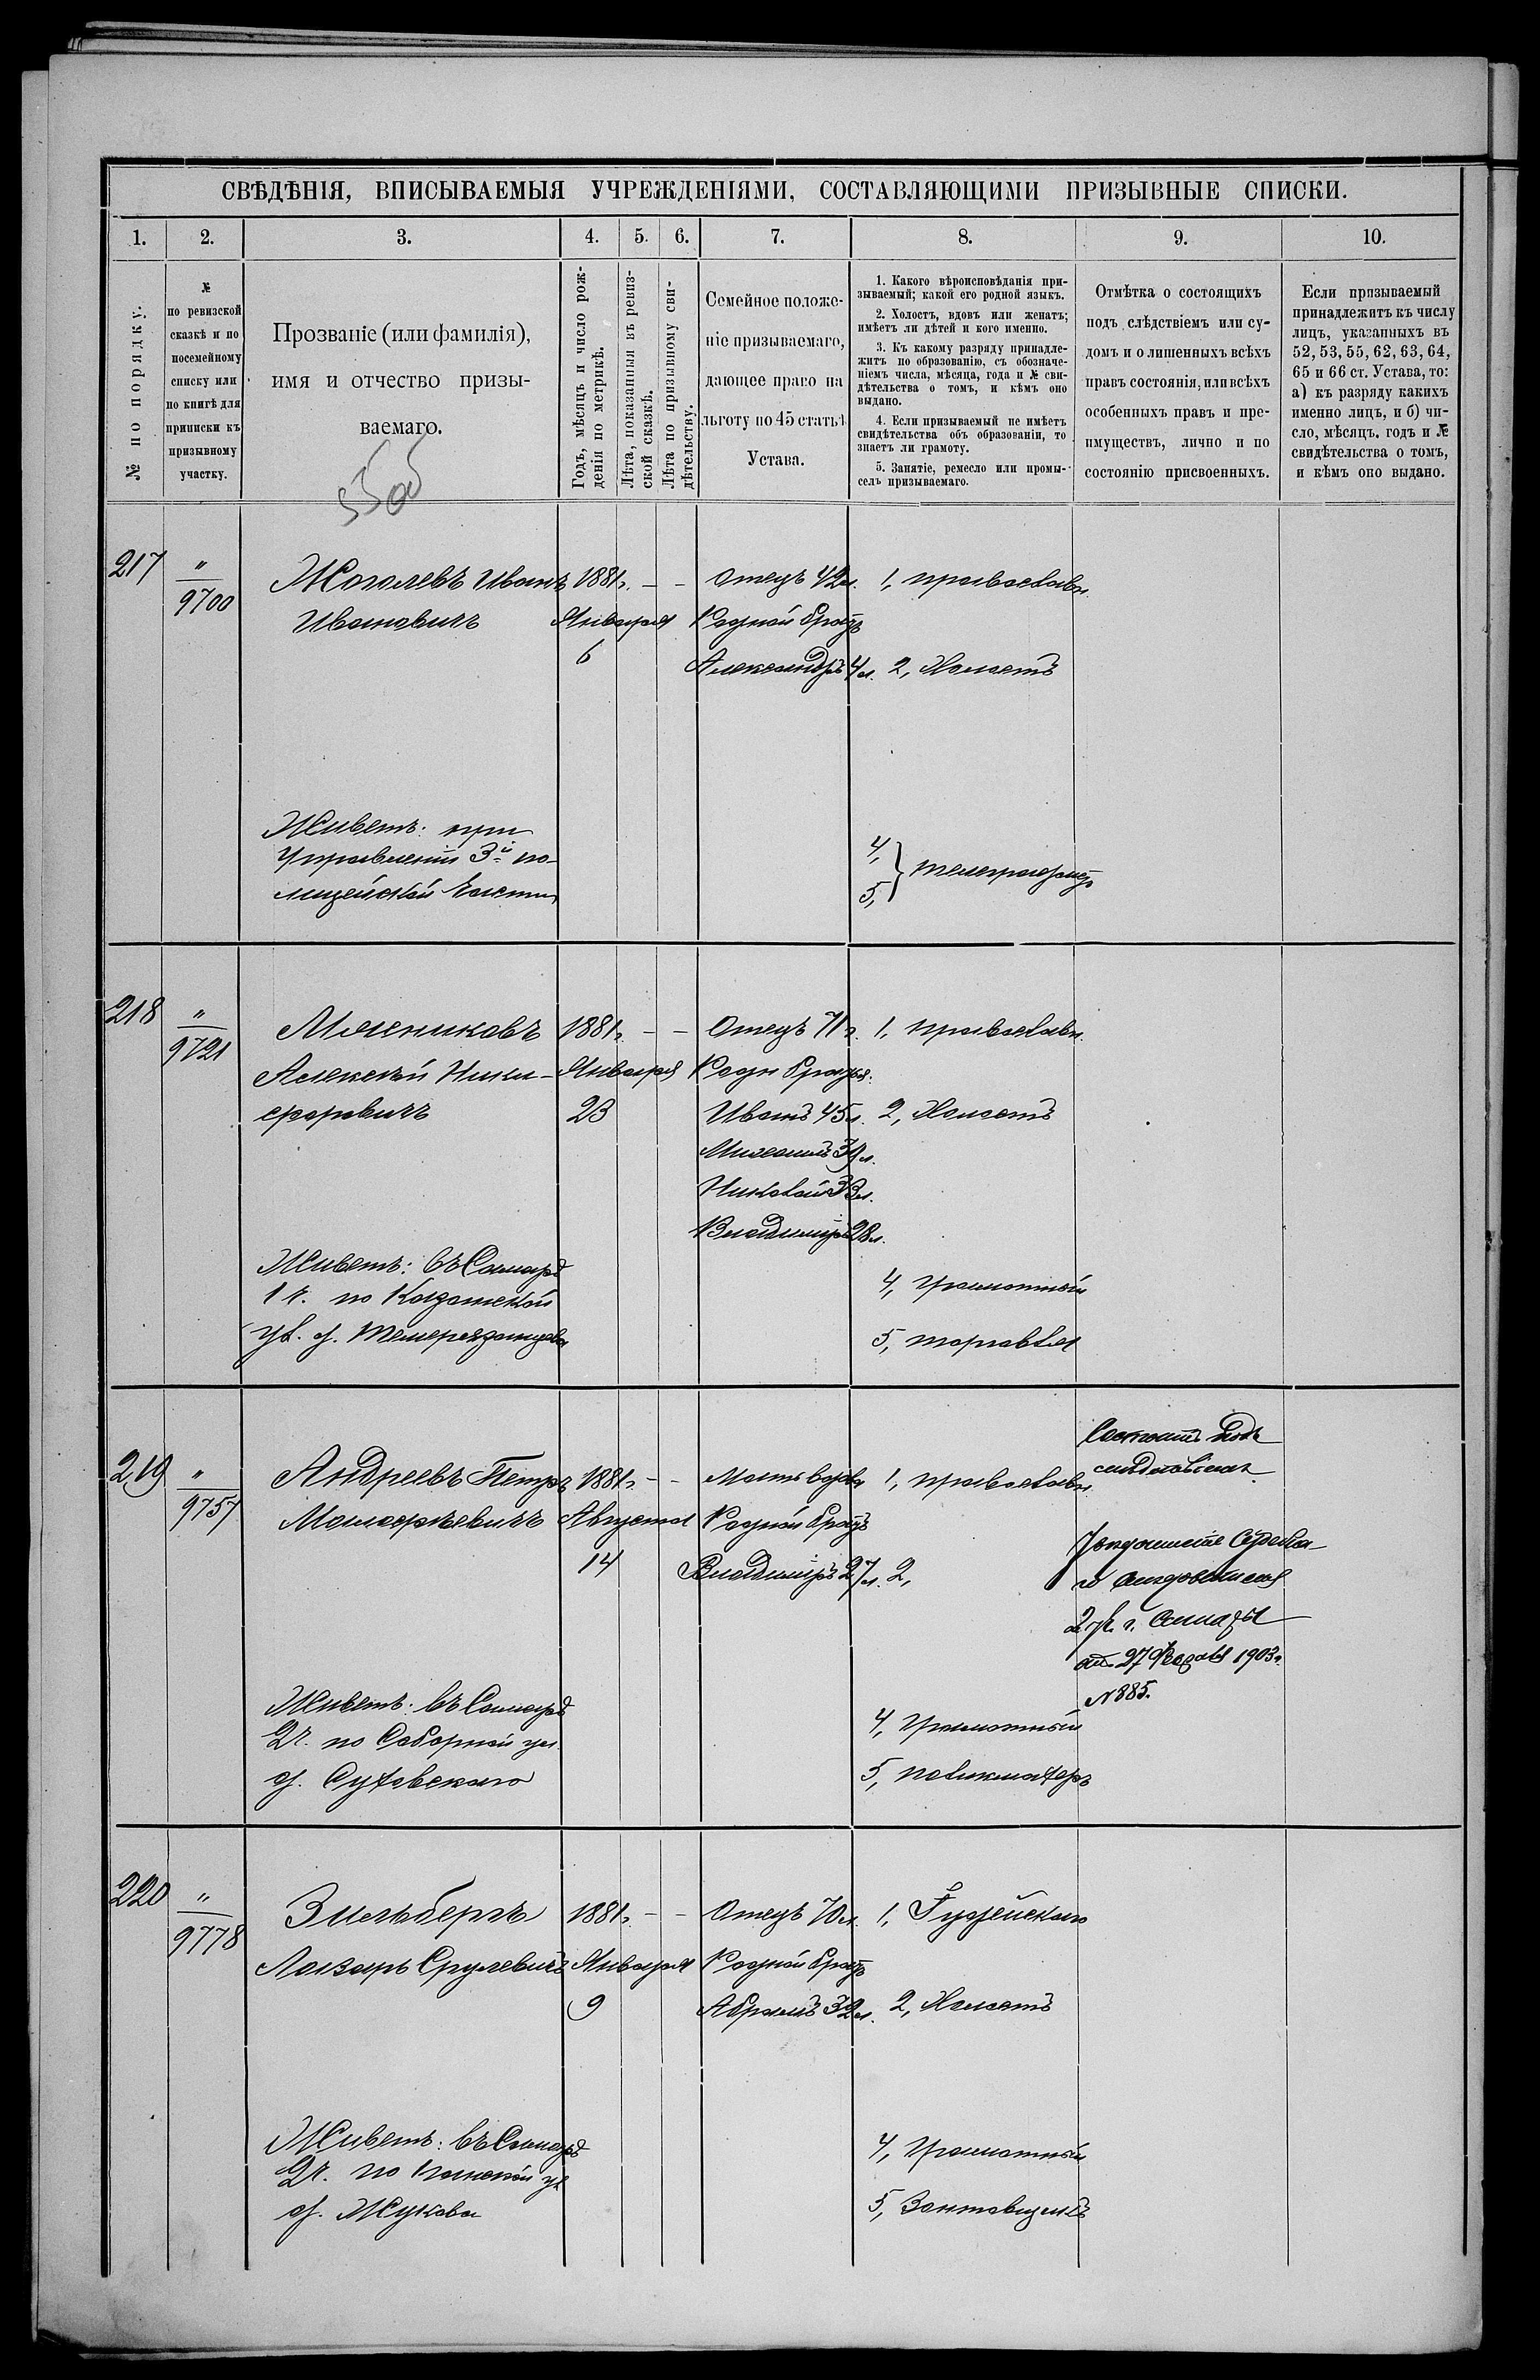 СВѢДѢНІЯ, ВПИСЫВАЕМЫЯ УЧРЕЖДЕНІЯМИ, СОСТАВЛЯЮЩИМИ ПРИЗЫВНЫЕ СПИСКИ.
1. 2. 3. 4. 5. 6. 7. 8. 9. 10.
№ по порядку.
№
по ревизской
сказкѣ и по
посемейному
списку или
по книгѣ для
приписки къ
призывному
участку.
Прозваніе (или фамилія),
имя и отчество призы-
ваемаго.
Годъ, мѣсяцъ и число рож-
денія по метрикѣ.
Лѣта, показанныя въ ревиз-
ской сказкѣ.
Лѣта по призывному сви-
дѣтельству.
Семейное положе-
ніе призываемаго,
дающее право на
льготу по 45 статьѣ
Устава.
1. Какого вѣроисповѣданія при-
зываемый; какой его родной языкъ.
2. Холостъ, вдовъ или женатъ;
имѣетъ ли дѣтей и кого именно.
3. Къ какому разряду принадле-
житъ по образованію, съ обозначе-
ніемъ числа, мѣсяца, года и № сви-
дѣтельства о томъ, и кѣмъ оно
выдано.
4. Если призываемый не имѣетъ
свидѣтельства объ образованіи, то
знаетъ ли грамоту.
5. Занятіе, ремесло или промы-
селъ призываемаго.
Отмѣтка о состоящихъ
подъ слѣдствіемъ или су-
домъ и о лишенныхъ всѣхъ
правъ состоянія, или всѣхъ
особенныхъ правъ и пре-
имуществъ, лично и по
состоянію присвоенныхъ.
Если призываемый
принадлежитъ къ числу
лицъ, указанныхъ въ
52, 53, 55, 62, 63, 64,
65 и 66 ст. Устава, то:
а) къ разряду какихъ
именно лицъ, и б) чи-
сло, мѣсяцъ, годъ и №
свидѣтельства о томъ,
и кѣмъ оно выдано.
217 " Жоголевъ Иванъ 1881г. – – Отецъ 42л. 1, православн.
9700 Ивановичъ Января Родной братъ
6 Александръ 4л. 2, Холостъ
Живетъ: при
Управленіи 3й по-
лицейской части
4,
5, } телеграфистъ
218 " 1881г. – – Отецъ 71г. 1, православн.
9721 Алексѣй Ники- Января Родн братья:
форовичъ 23 Иванъ 45л. 2, Холостъ
Михаилъ 39л.
Николай 33л.
Владиміръ 28л.
Живетъ: въ Самарѣ
1 ч. по Казанской
ул. д.
4, грамотный
5, торговля
219 " Андреевъ Петръ 1881г. – – Мать вдова 1, православн.
9757 Августа Родной братъ
14 Владиміръ 27л. 2,
Состоитъ подъ
слѣдствіемъ
Увѣдомленіе Судебна-
го слѣдователя
2 уч. г. Самары
отъ 27 Февраля 1903г.
№ 885.
Живетъ: въ Самарѣ
2ч. по Соборной ул.
д.
4, грамотный
5,
220 " Зильбергъ 1881г. – – Отецъ 70л. 1, Іудейскаго
9778 Лазарь Срулевичъ Января Родной братъ
9 Абрамъ 32л. 2, Холостъ
Живетъ: въ Самарѣ
2ч. по Панской ул
д. Жукова
4, грамотный
5,